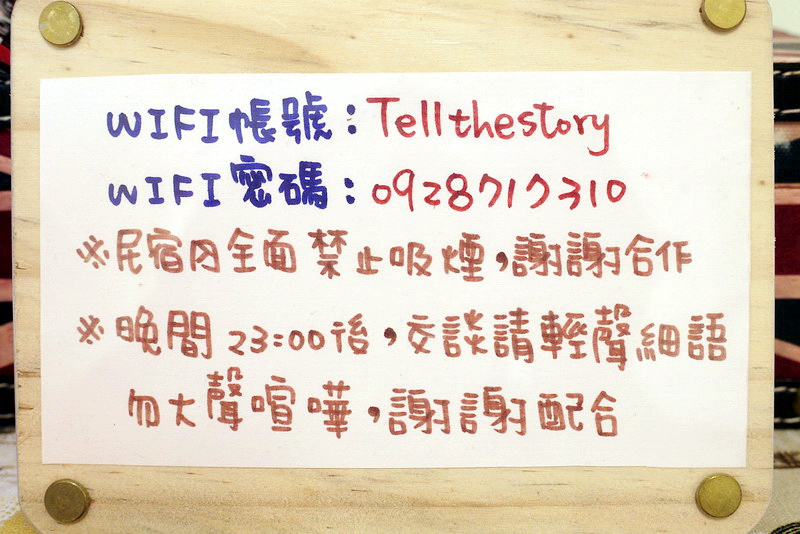 WIFI帳號：Tellthestory
WIFI密碼：0928717310
※民宿內全面禁止吸煙，謝謝合作
※晚間23:00後，交談請輕聲細語
勿大聲喧嘩，謝謝配合